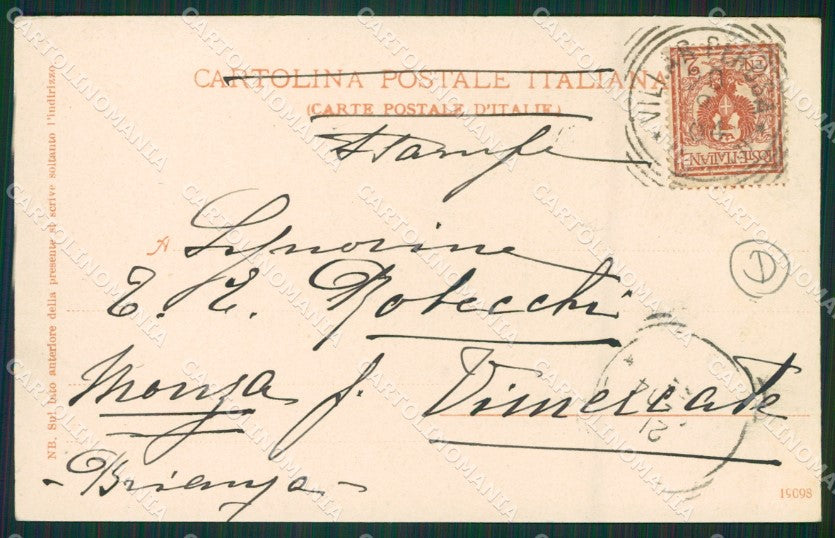 CARTOLINA POSTALE ITALIANA
(CARTE POSTALE D'ITALIE)
Stampe
A Signorine
E. E. Robecchi
Monza p. Vimercate
- Brianza -
NB. Sul lato anteriore della presente si scrive soltanto l'indirizzo
POSTE ITALIANE
2
15098
CARTOLINOMANIA